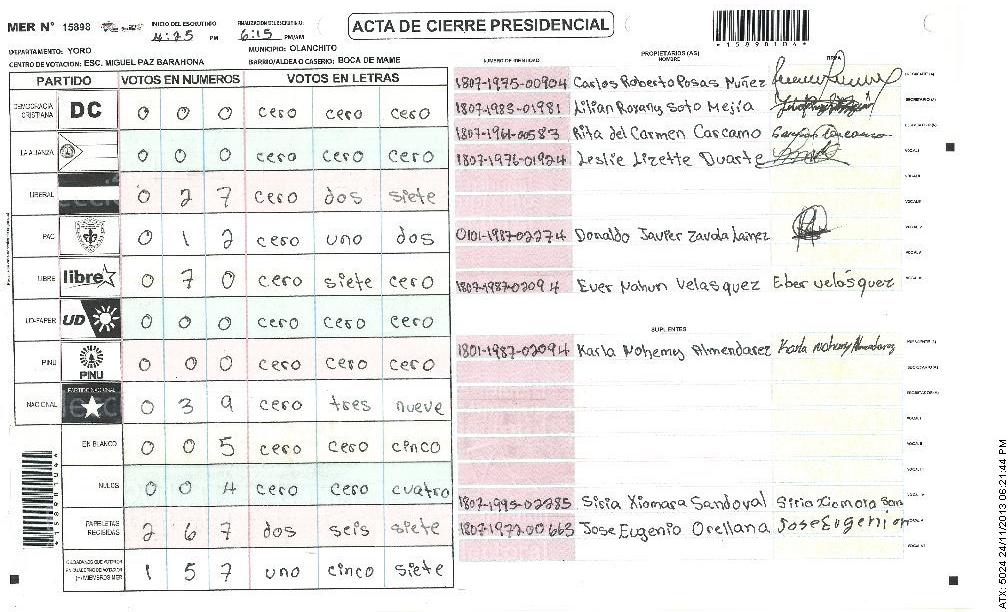 MER N° 15898 INICIO DEL ESCRUTINIO 4:25 PM FINALIZACION ESCRUTINIO: 6:15 PM/AM ACTA DE CIERRE PRESIDENCIAL
*15898104*
DEPARTAMENTO: YORO MUNICIPIO: OLANCHITO
CENTRO DE VOTACION: ESC. MIGUEL PAZ BARAHONA BARRIO/ALDEA O CASERIO: BOCA DE MAME
PARTIDO VOTOS EN NUMEROS VOTOS EN LETRAS
DEMOCRACIA CRISTIANA DC 0 0 0 cero cero cero
LA ALIANZA 0 0 0 cero cero cero
LIBERAL 0 2 7 cero dos siete
PAC 0 1 2 cero uno dos
LIBRE libre 0 7 0 cero siete cero
UD-FAPER UD 0 0 0 cero cero cero
PINU PINU 0 0 0 cero cero cero
NACIONAL PARTIDO NACIONAL 0 3 9 cero tres nueve
EN BLANCO 0 0 5 cero cero cinco
NULOS 0 0 4 cero cero cuatro
PAPELETAS RECIBIDAS 2 6 7 dos seis siete
CIUDADANOS QUE VOTARON EN CUADERNO DE VOTACION (+) MIEMBROS MER 1 5 7 uno cinco siete
*15898104*
PROPIETARIOS (AS)
NUMERO DE IDENTIDAD NOMBRE FIRMA
1807-1975-00904 Carlos Roberto Posas Nuñez PRESIDENTE (A)
1807-1983-01981 Lilian Roxany Soto Mejía SECRETARIO (A)
1807-1961-00583 Rita del Carmen Carcamo ESCRUTADOR (A)
1807-1976-01924 Leslie Lizette Duarte VOCAL I
VOCAL II
VOCAL III
0101-1987-02274 Donaldo Javier Zavala Lainez VOCAL IV
VOCAL V
1807-1987-02094 Ever Nahun Velasquez Eber velásquez
SUPLENTES
1801-1987-02094 Karla Nohemy Almendarez Karla Nohemy Almendarez PRESIDENTE (A)
SECRETARIO (A)
ESCRUTADOR (A)
VOCAL I
VOCAL II
VOCAL III
1807-1995-02285 Siria Xiomara Sandoval
1807-1972-00663 Jose Eugenio Orellana Jose Eugenio
ATX: 5024 24/11/2013 06:21:44 PM